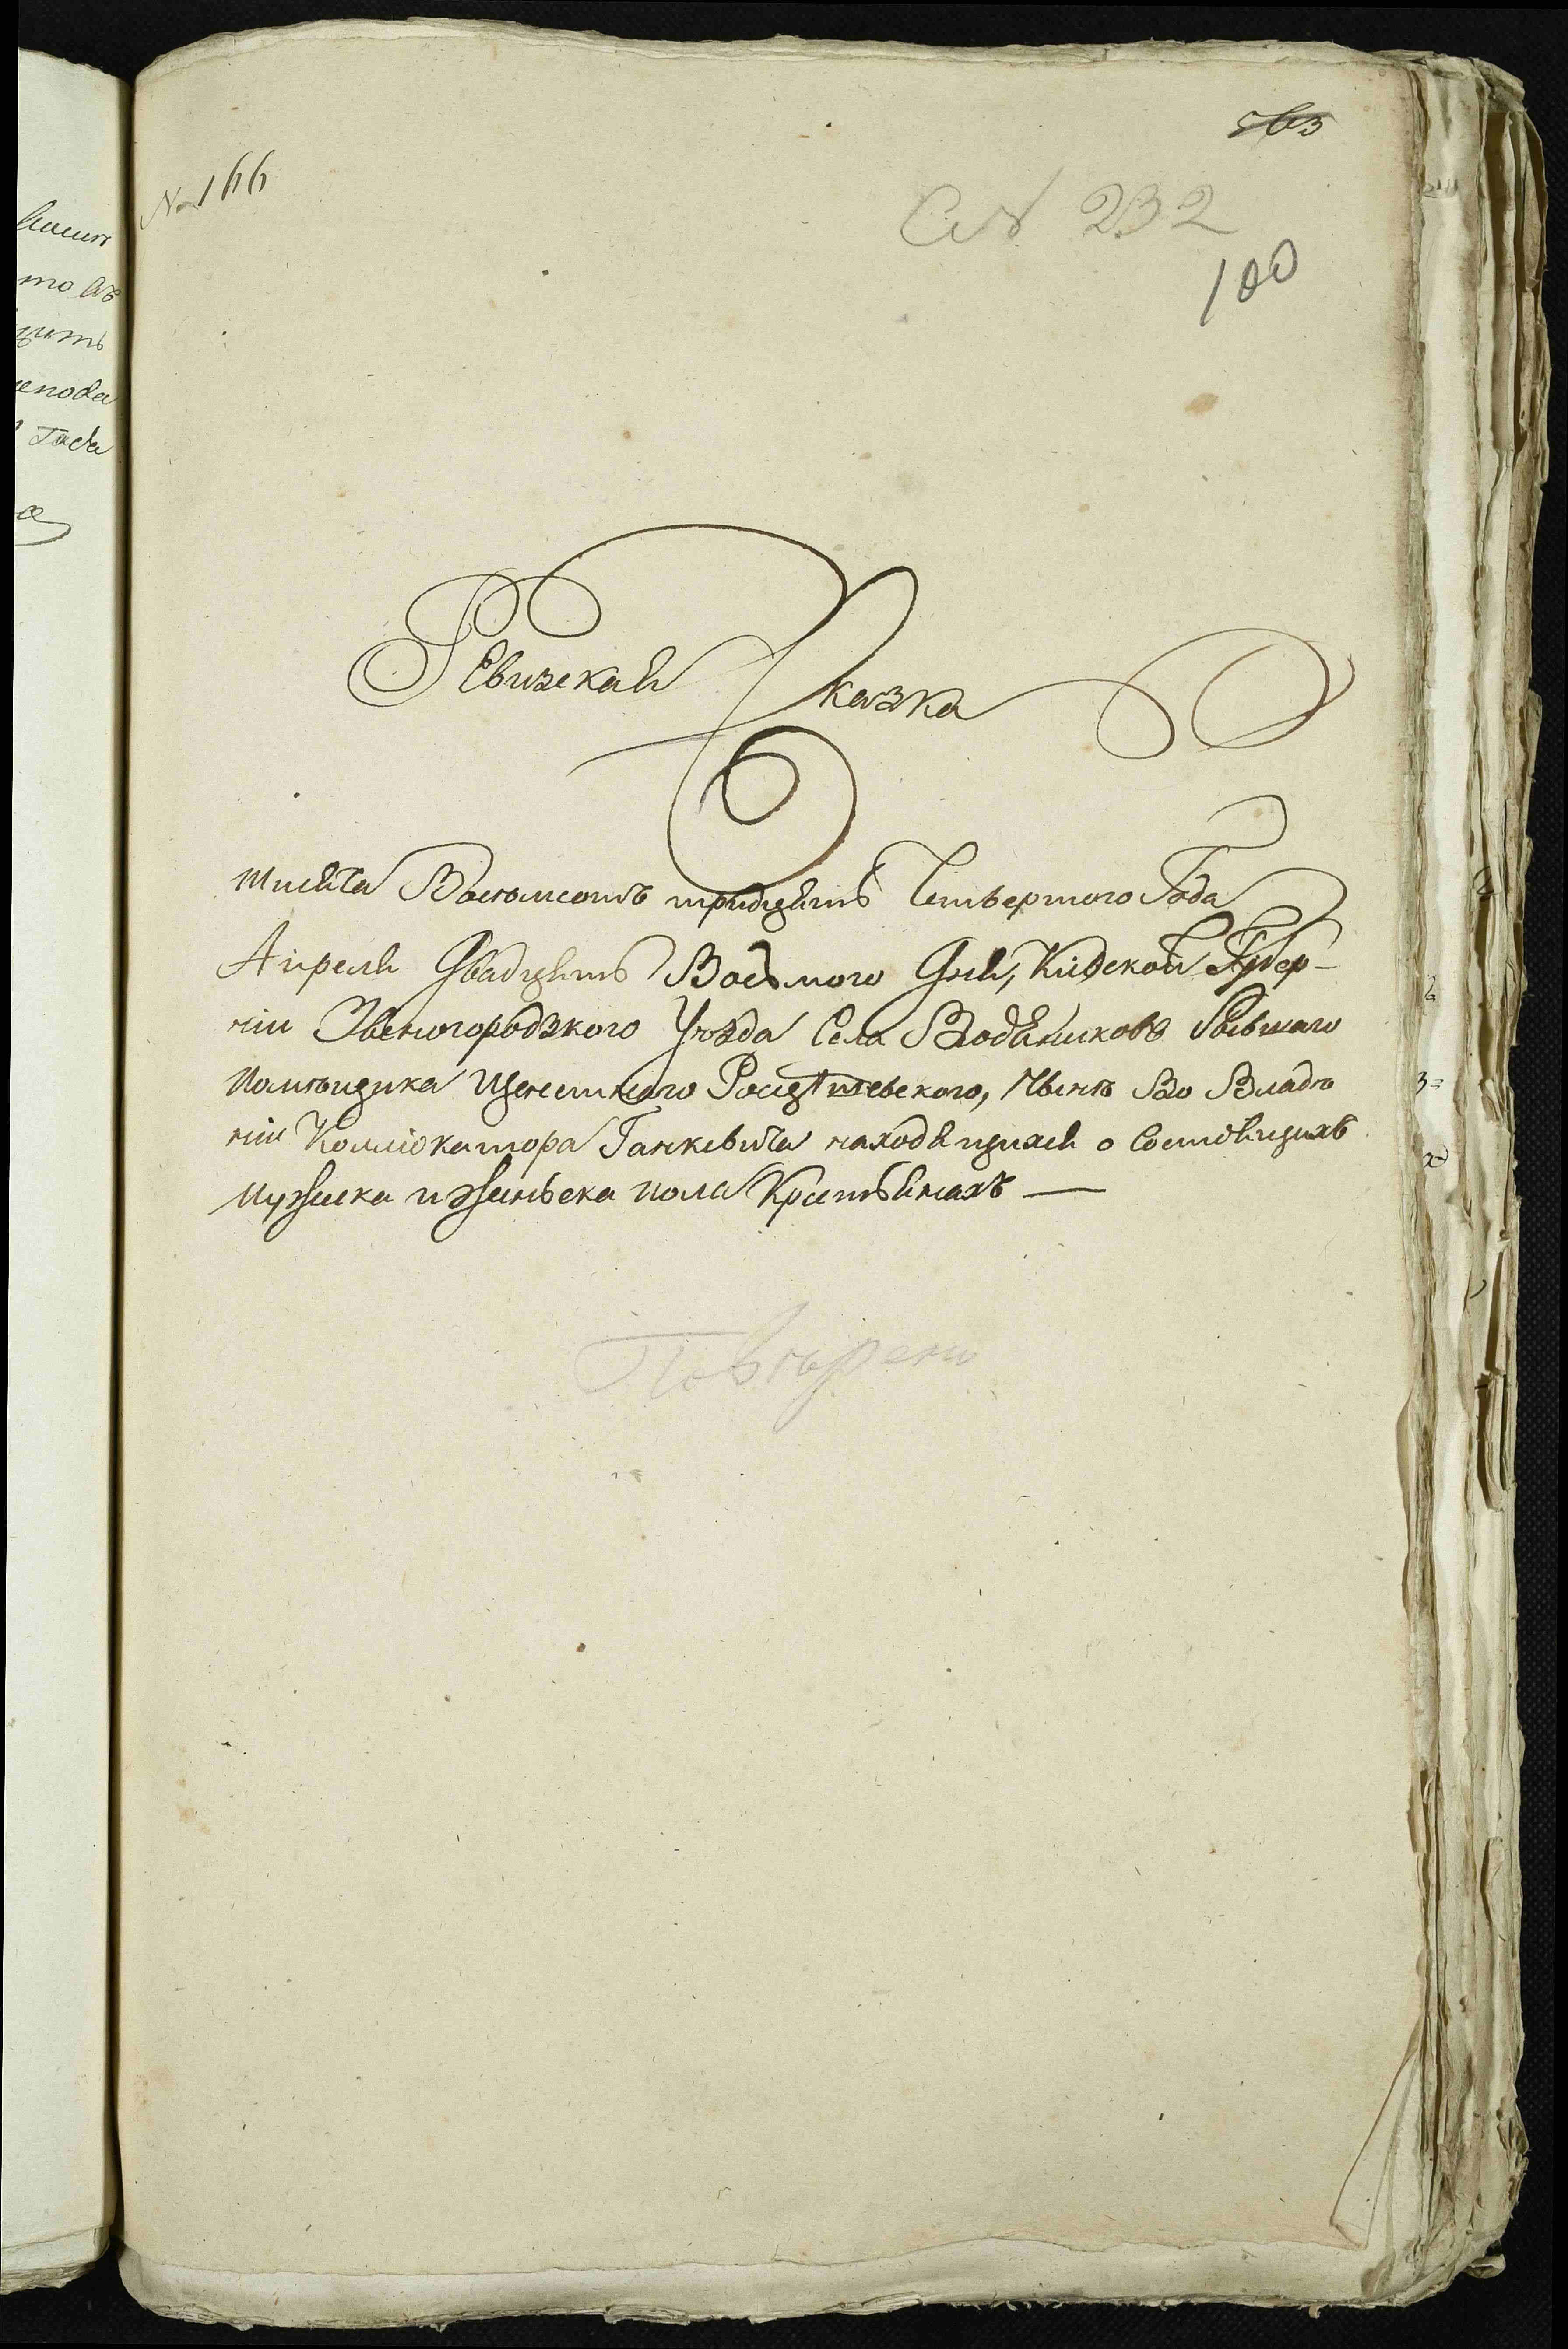 563
№ 166
232
100
Ревизская Сказка
тисяча Восьмсотъ тридцять Четвертого Года
Апреля Двадцять Восьмого Дня, Кіевской Губер-
ніи Звеногородзкого Уезда Села Водяникова Бывшаго
Помѣщика Щенснаго Росцѣшевского, Нынѣ Во Владѣ
ніи Коллокатора Ганкевича находящихся о Состоящихъ
мужеска и женьска пола Крестьянахъ —
Повѣрено
то въ
Года